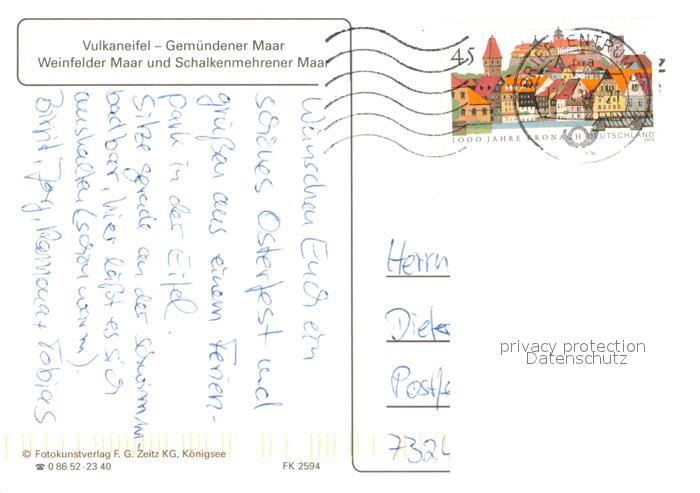 Vulkaneifel – Gemündener Maar
Weinfelder Maar und Schalkenmehrener Maar
Wünschen Euch ein
schönes Osterfest und
grüßen aus einem Ferien-
park in der Eifel.
Sitze gerade an der Schwimm-
badbar, hier läßt es sich
aushalten (schön warm).
Birgit, Jörg, Ramona + Tobias
© Fotokunstverlag F. G. Zeitz KG, Königsee
☎ 0 86 52 - 23 40
FK 2594
45
BRIEFZENTRUM
1000 JAHRE KRONACH DEUTSCHLAND
2003
Herrn
Dieter
Postf
7324
privacy protection
Datenschutz